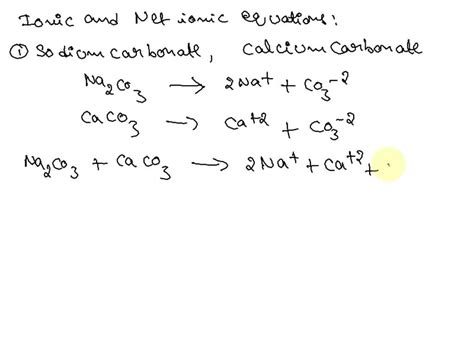 Ionic and Net ionic equations:
① Sodium carbonate, Calcium carbonate
Na₂CO₃ → 2Na⁺ + CO₃⁻²
CaCO₃ → Ca⁺² + CO₃⁻²
Na₂CO₃ + CaCO₃ → 2Na⁺ + Ca⁺² +